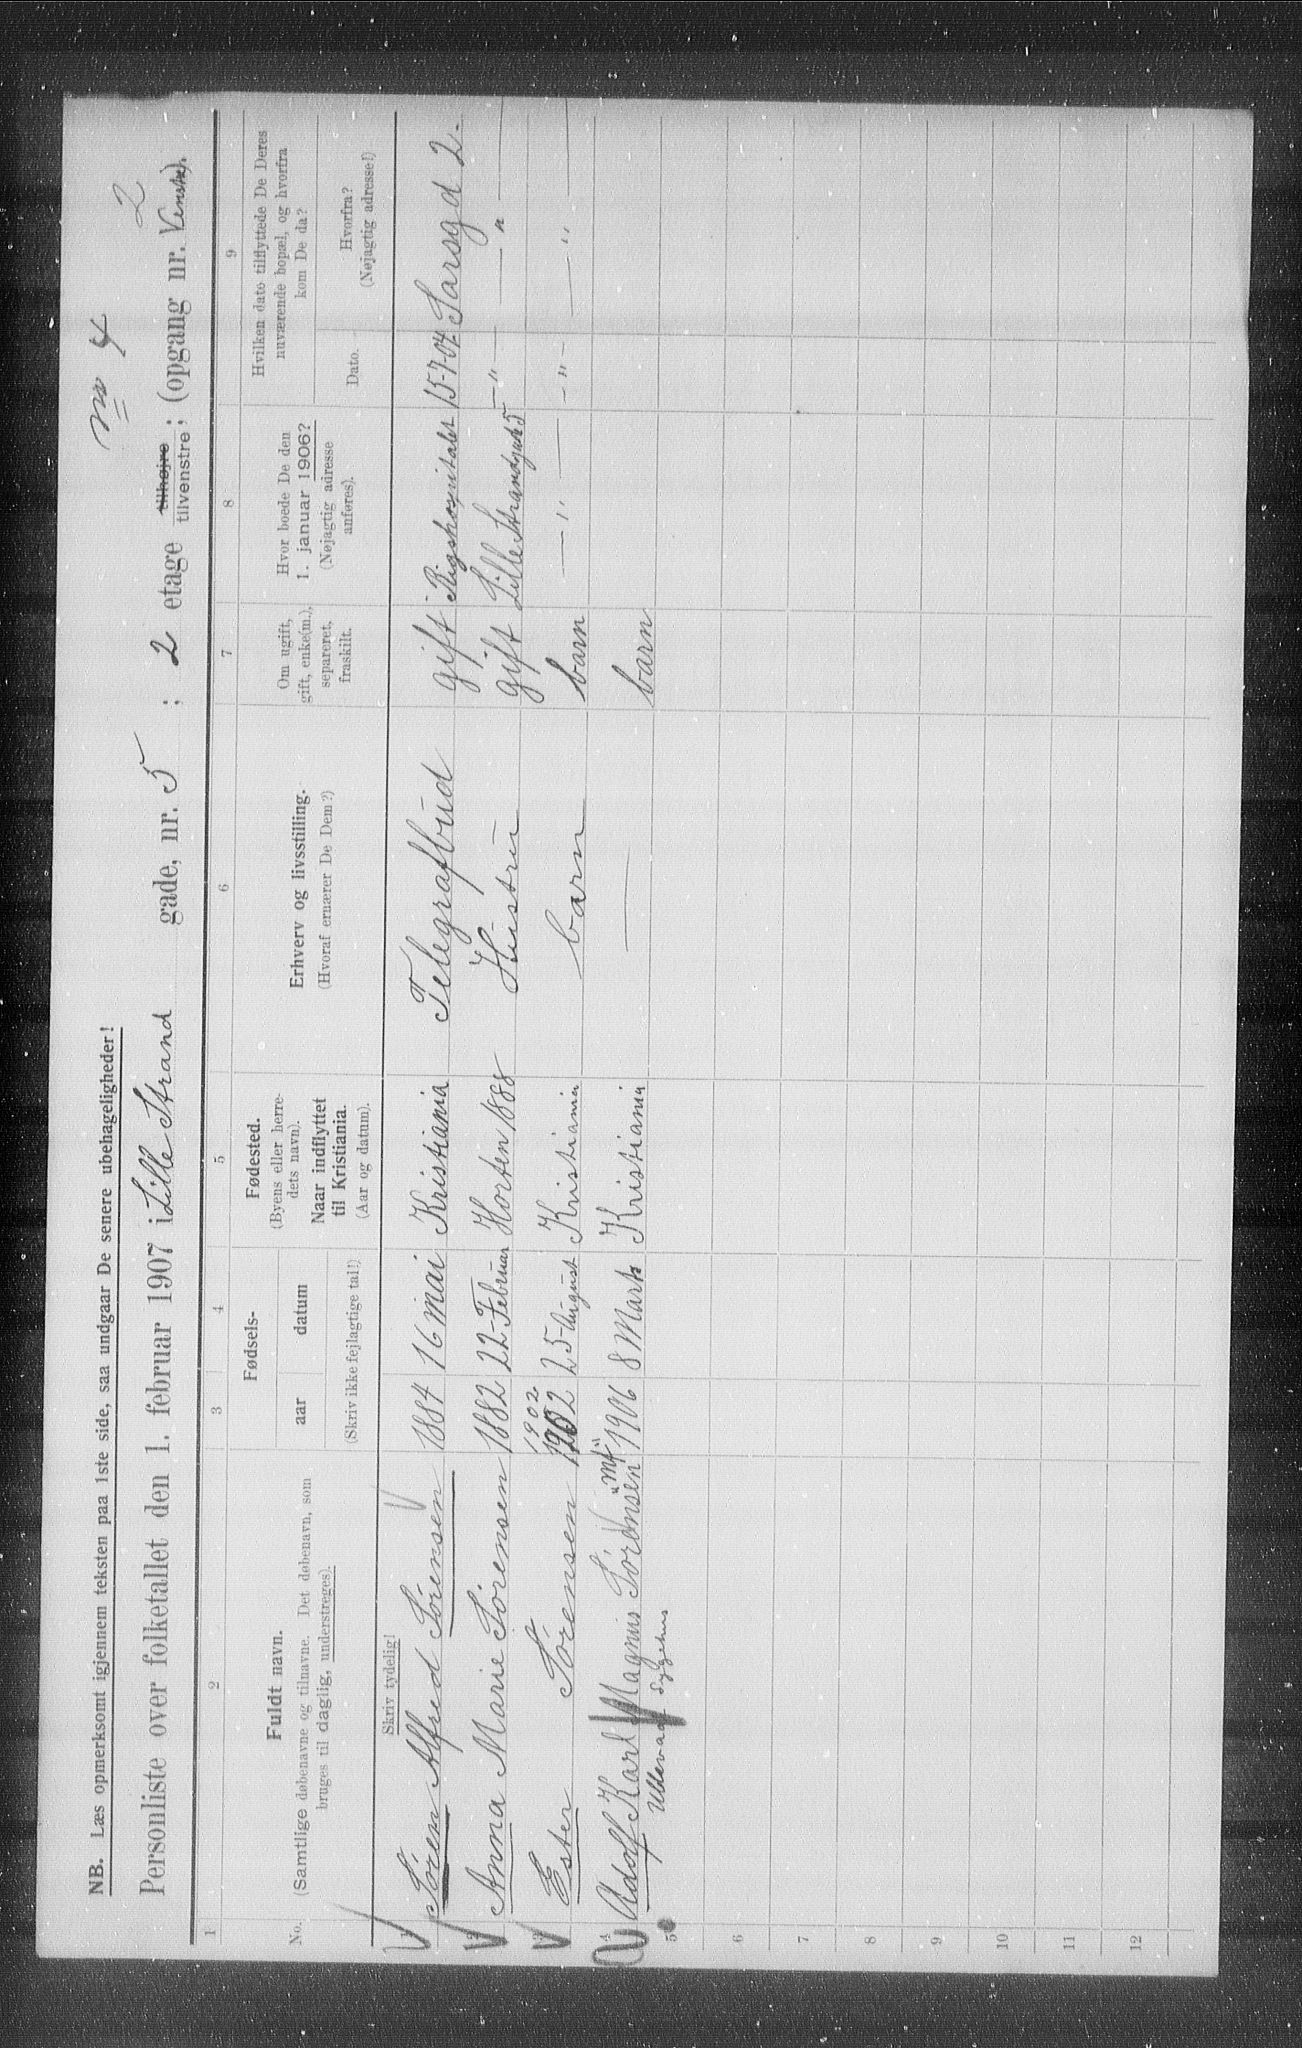 No 4
2
NB. Læs opmerksomt igjennem teksten paa 1ste side, saa undgaar De senere ubehageligheder!
Personliste over folketallet den 1. februar 1907 i Lille Strand gade, nr. 5 ; 2 etage tilhøjre tilvenstre ; (opgang nr. Venstre).
1 2 3 4 5 6 7 8 9
No.
Fuldt navn.
(Samtlige døbenavne og tilnavne. Det døbenavn, som
bruges til daglig, understreges).
Fødsels-
aar datum
(Skriv ikke fejlagtige tal!)
Fødested.
(Byens eller herre-
dets navn).
Naar indflyttet
til Kristiania.
(Aar og datum).
Erhverv og livsstilling.
(Hvoraf ernærer De Dem?)
Om ugift,
gift, enke(m.),
separeret,
fraskilt.
Hvor boede De den
1. januar 1906?
(Nøjagtig adresse
anføres).
Hvilken dato tilflyttede De Deres
nuværende bopæl, og hvorfra
kom De da?
Dato.
Hvorfra?
(Nøjagtig adresse!)
Skriv tydelig!
1 Sören Alfred Sörensen 1884 16 mai Kristiania Telegrafbud gift Rigshospitalet 15-7-04 Sarsgd 2.
2 Anna Marie Sörensen 1882 22 Februar Horten 1888 Hüstrü gift Lille Strandgade 5 — " — — " —
1902
3 Ester Sörensen 1902 25 August Kristiania barn barn — " — - " - — " —
4 Adolf Karl Magnus Sörensen "mf" 1906 8 Marts Kristiania — barn
Ullevaal Sygehus
5
6
7
8
9
10
11
12